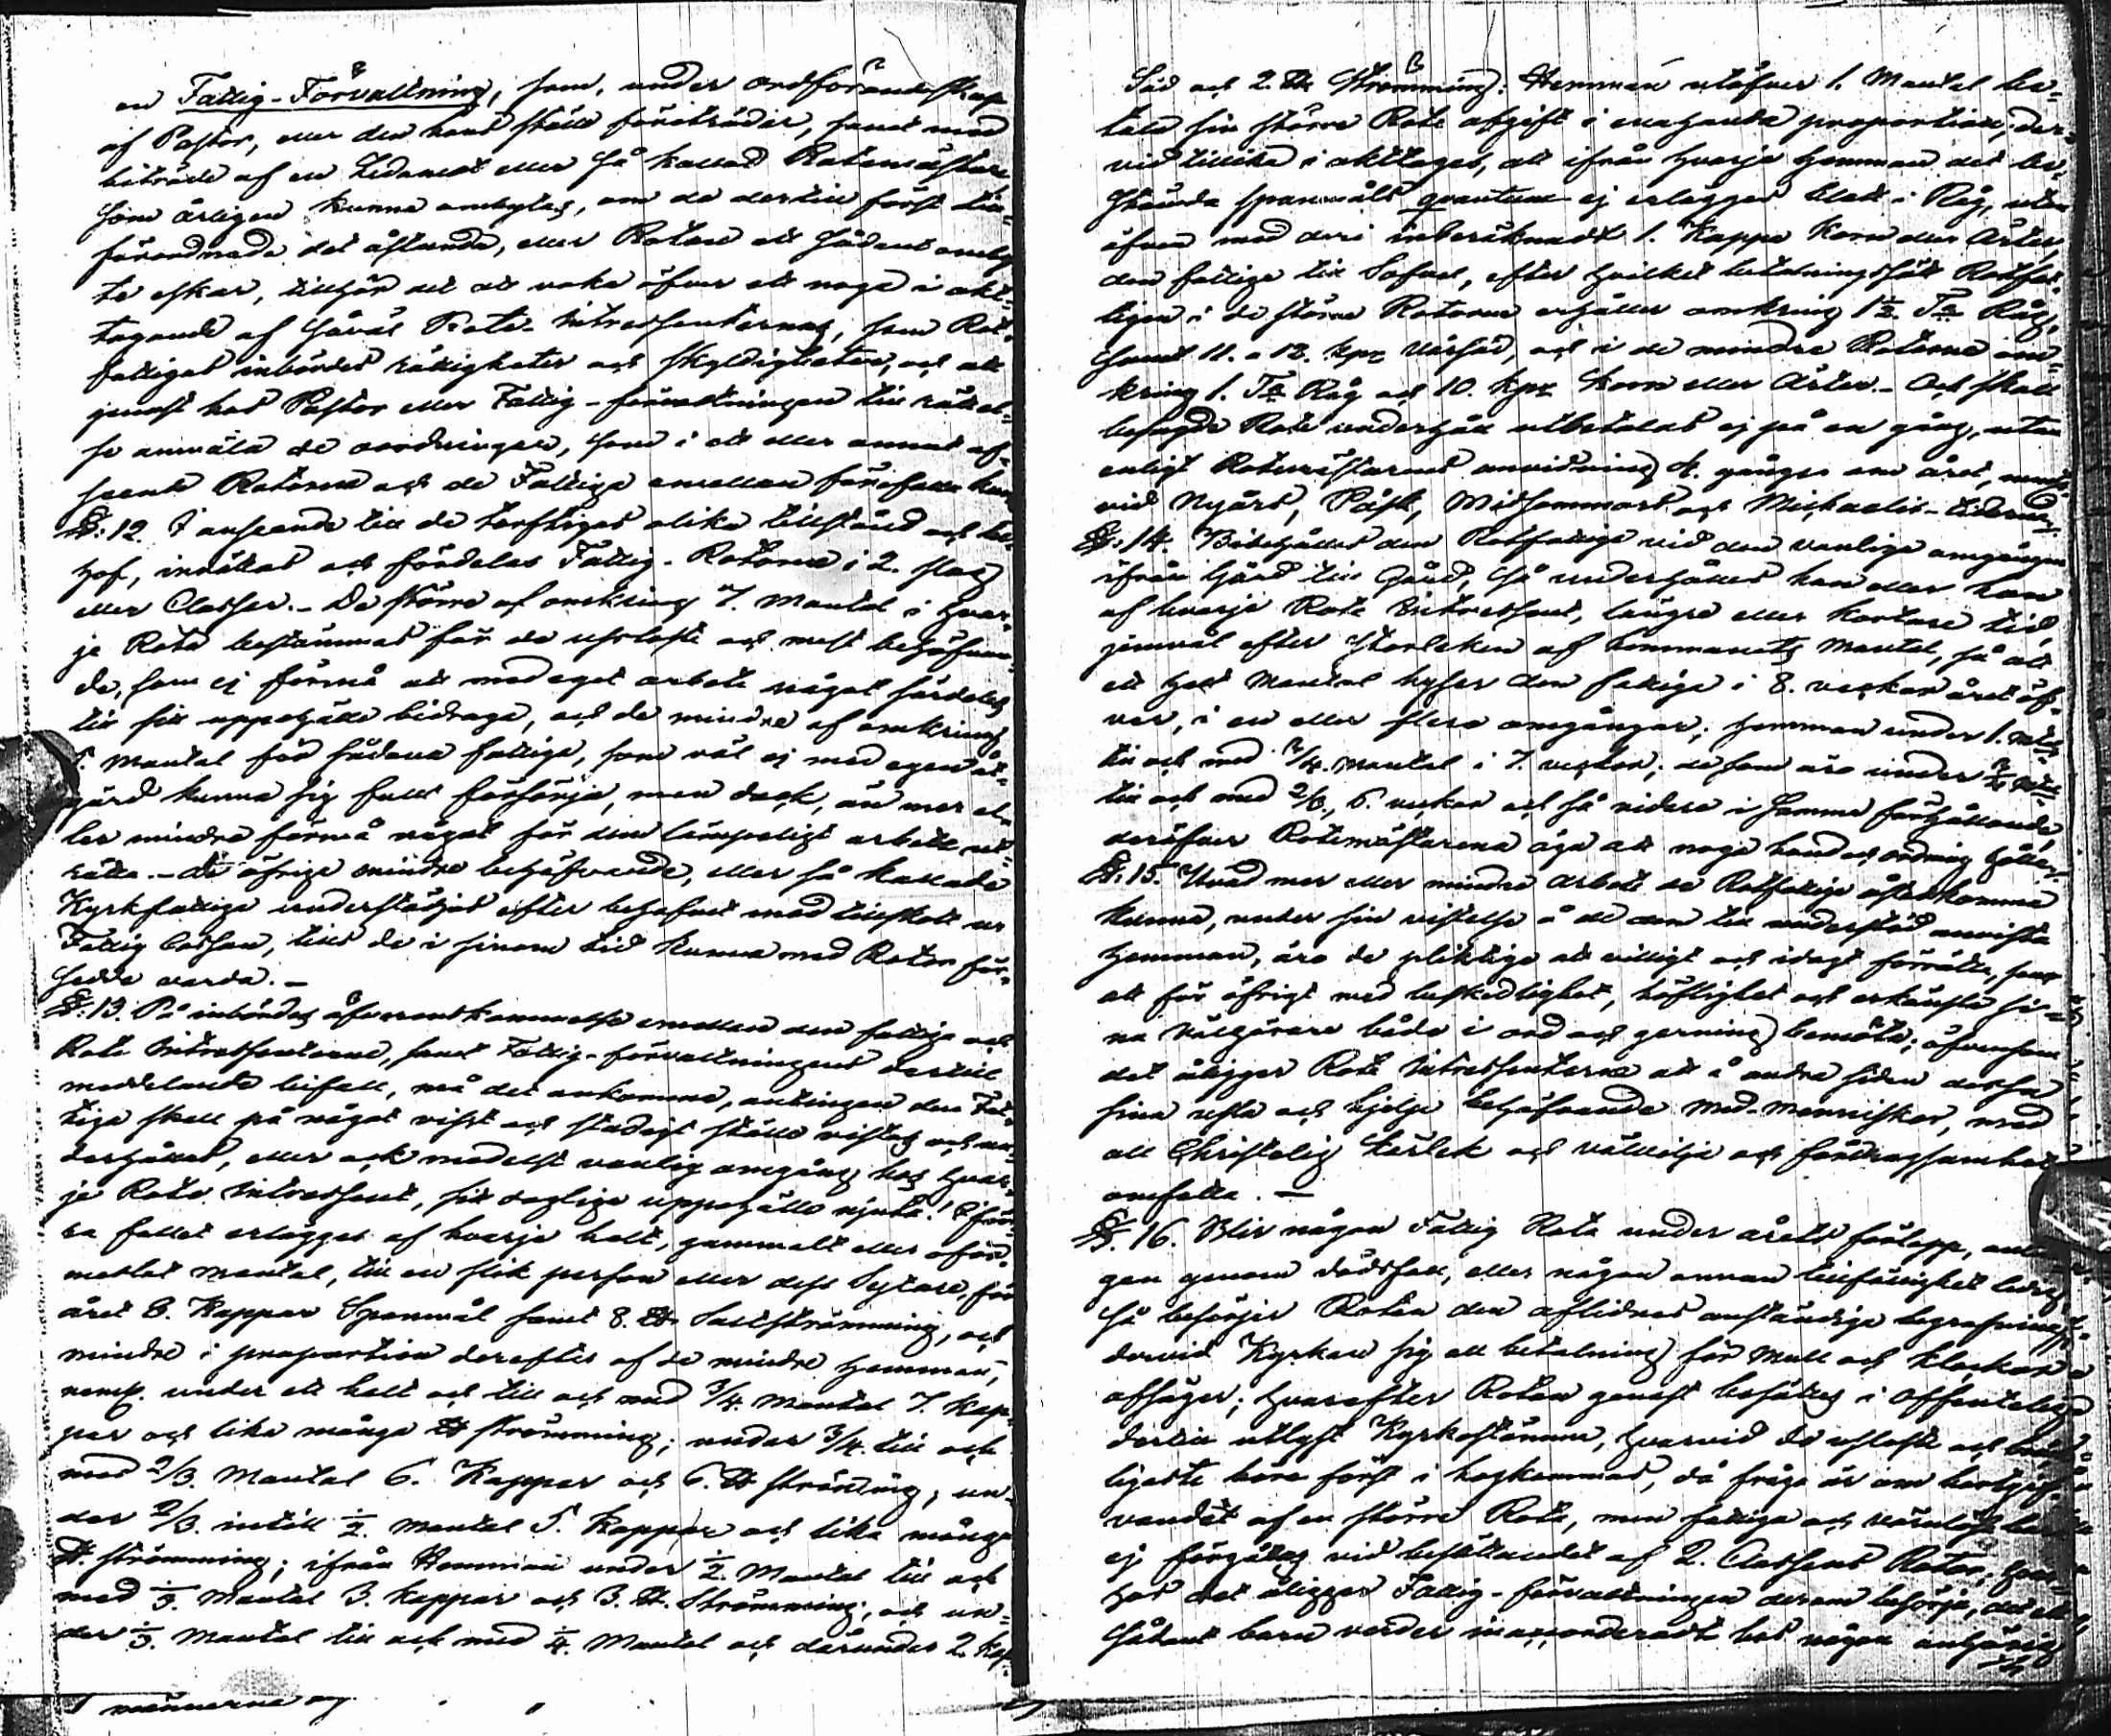 en Fattig-Förvaltning, som, under ordförandeskap
af Pastor, eller den hans ställe företräder, samt med
biträde af en Ledamot eller så kallad Rotemästare
som årligen kunna ombytas, om de dertill först
förordnade det åstunda, eller Roten ett sådant omby-
te eskar, tillhör det at vaka öfver ett noga i akt-
tagande af såväl Rote-Intressenternas, som Rot-
fattigas inbördes rättigheter och skyldigheter, och att
genast hos Pastor eller Fattig-förvaltningen till rättel-
se anmäla de oordningar, som i ett eller annat af-
seende Rotarne och de Fattige emellan förefalla kun
§: 12. I anseende till de torftigas olika tillstånd och be-
hof, inrättas och fördelas Fattig-Rotarne i 2. slag
eller Classer. - De större af omkring 7. Mantal i hvar-
je Rota bestämmas för de uslaste och mest behöfvan-
de, som ej förmå att med eget arbete något särdeles
till sitt uppehälle bidraga, och de mindre af omkring
5. Mantal för sådana fattige, som väl ej med egen åt-
gärd kunna sig fullt försörja, men dock, än mer el-
ler mindre förmå något för dem lämpeligt arbete ut-
rätta. - de öfrige mindre behöfvande, eller så kallade
Kyrkfattige understödjas efter behofvet med tillskott ur
Fattig Cassan, tills de i sinom tid kunna med Rotar för-
sedde varda. -
§: 13. På inbördes öfverenskommelse emellan den fattige och
Rote Intressenterne, samt Fattig-förvaltningens dertill
meddelande bifall, må det ankomma, antingen den Fat-
tige skall på något visst och stadigt ställe vistas och un-
derhållas, eller ock medelst vanlig omgång hos hvar-
je Rote Intressent, sitt dagliga uppehälle njuta! I för-
ra fallet erlägges af hvarje helt, gammalt eller oför-
medlat Mantal, till en slik person eller dess Sytare, för
året 8. Kappar Spanmål samt 8. ℔ Saltströmming, och
mindre i proportion derefter af de mindre Hemman,
neml. under ett helt och till och med 3/4. Mantal 7. Kap-
par och lika många ℔ strömming; under 3/4. till och
med 2/3. Mantal 6. Kappar och 6. ℔ ströming; un-
der 2/3. intill 1/2. Mantal 5. Kappar och lika många
℔. strömming; ifrån Hemman under 1/2. Mantal till och
med 1/3. Mantal 3. Kappar och 3. ℔. Strömming, och un-
der 1/3. Mantal till och med 1/4. Mantal och därunder 2. Kap-
männerna og
Säd och 2. ℔ Strömming. Hemman utöfver 1. Mantal be-
tala sin större Rote afgift i enahanda proportion, der-
vid tillika i akttages, att ifrån hvarje Hemman det be-
stämda spannmåls quantum ej erlägges blott i Råg, utan
äfven med deri inberäknadt 1. Kappe Korn eller Ärter,
den fattige till Sofvel, efter hvilket betalningssätt Rotfat-
tigen i de större Rotarne erhåller omkring 1 1/2. Ta Råg,
samt 11. a 12. kpr Vårsäd, och i de mindre Rotarne om-
kring 1. Ta Råg och 10. kpr Korn eller Ärter. - Och skall
besagde Rote underhåll utbetalas ej på en gång, utan
enligt Rotemästarens anvisning 4. gånger om året, 
vid Nyårs, Påsk, Midsommars och Michaelis-tiderne.
§: 14. Bibehålles den Rotfattige vid den vanliga omgången
ifrån Gård till Gård, så underhålles han eller hon
af hvarje Rote Intressent, längre eller kortare tid,
jemväl efter storleken af hemmanets Mantal, så att
ett helt Mantal hyser den fattige i 8. veckor året öf-
ver, i en eller flera omgångar; hemman under 1. 
till och med 3/4. Mantal i 7. veckor; de som äro under 3/4 
till och med 2/3, 6. veckor och så vidare i samma förhållande,
deröfver Rotemästarena äga att noga hand och ordning hålla.
§: 15. Hvad mer eller mindre arbete de Rotfattige åstadkomma
kunna, under sin vistelse å de dem till understöd anvista
Hemman, äro de pliktige att villigt och idogt förrätta, samt
att för öfrigt med beskedlighet, höflighet och erkänsla si-
na Välgörare både i ord och gerning bemöta; äfvensom
det åligger Rote Intressenterne att å andra sidan dessa
sina usla och hjelp behöfvande med-menniskor, med
all Christelig kärlek och välvilja och fördragsamhet
omfatta. -
§. 16. Blir någon Fattig Rota under årets förlopp, antin-
gen genom dödsfall, eller någon annan tillfällighet ledig,
så besörjer Roten den aflidnes anständiga begrafning,
dervid Kyrkan sig all betalning för Mull och klockor
afsäger; hvarefter Roten genast besättes i offentelig
dertill utlyst Kyrkostämma, hvarvid de uslaste och
ligaste böra först i hogkommas, då fråga är om bortgif-
vandet af en större Rote, men fattige och värnlöse barn
ej förgätas vid besättandet af 2. Classens Rotar, 
hos det åligger Fattig-förvaltningen derom besörja, det ett
sådant barn varder inaccorderadt hos någon anhörig